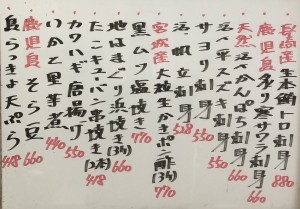 長崎産 生本鮪トロ刺身 880
鹿児島 釣り寒サワラ刺身 660
天然 活〆かんぱち刺身 660
活〆平スズキ刺身 550
サヨリ刺身 550
活帆立刺身 528
宮城産 大粒生かきポン酢 770
黒ムツ塩焼き 770
地はまぐり浜焼き(3ケ) 660
たこキューバン串焼き(2本) 418
カワハギ唐揚げ 550
いかと里芋煮 440
鹿児島 そら豆 660
島らっきょ天ぷら 418